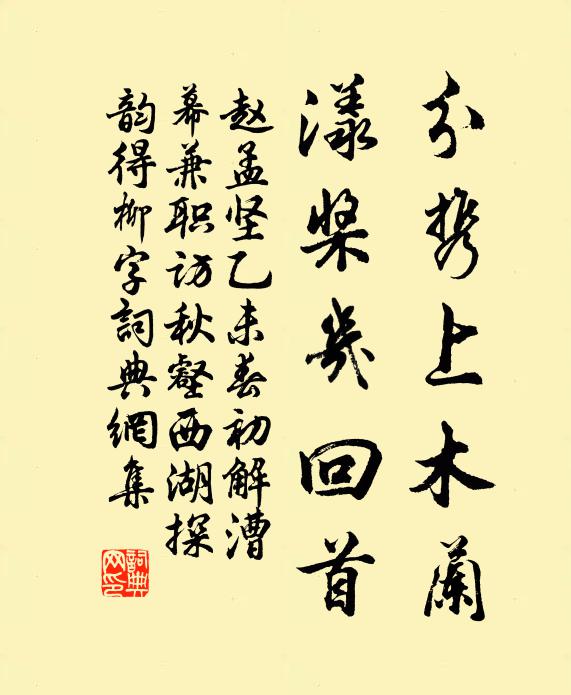 分携上木蘭
漾槳幾回首
赵孟坚乙未春初解漕
幕兼职访秋壑西湖探
韵得柳字詞典網集
詞典
网印